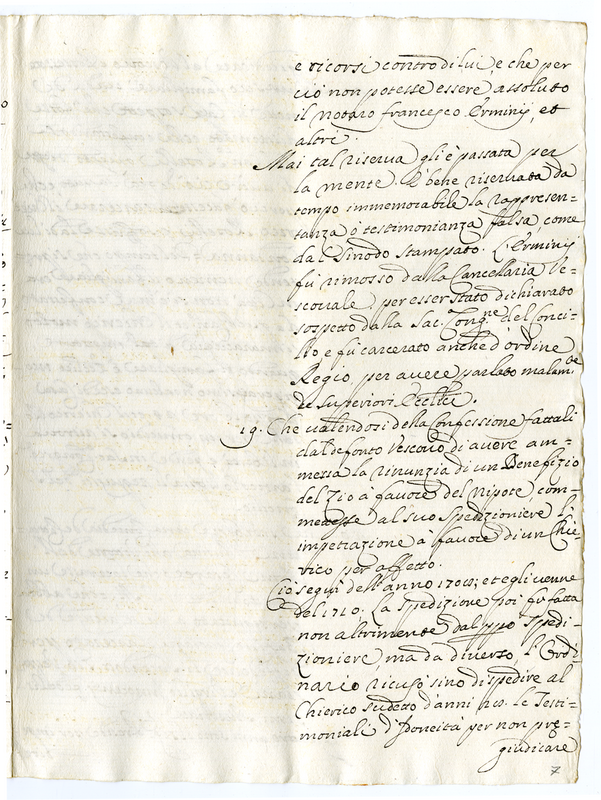 e ricorsi contro di lui, e che per
ciò non potesse essere assoluto
il notaro francesco Erminij, et
altri.
Mai tal riserva gli è passata per
la mente. È bene riservata da
tempo immemorabile la rappresen=
tanza ò testimonianza falsa, come
da Sinodo stampato. L'Erminij
fù rimosso dalla Cancelaria Ve=
scovale per esser stato dichiarato
sospetto dalla Sac. Cong.ne del Conci=
lio e fù carcerato anche d'ordine
Regio per avere parlato malam.te
de Superiori Eccl.ci.
19. Che valendosi della Confessione fattali
dal defonto Vescovo di avere am=
messa la rinunzia di un Benefizio
del Zio à favore del Nipote, com=
mettesse al suo Spedizioniere l'
impetrazione à favore di un Chie=
rico per affetto.
Ciò seguì dell'anno 1708; et egli venne
del 1710. La spedizione poi fù fatta
non altrimente dal sppo Spedi=
zioniere, ma da diverso, l'Ordi=
nario ricusò sino di spedire al
Chierico sudetto d'anni 20. le Testi=
moniali d'Idoneità per non pre=
giudicare
7